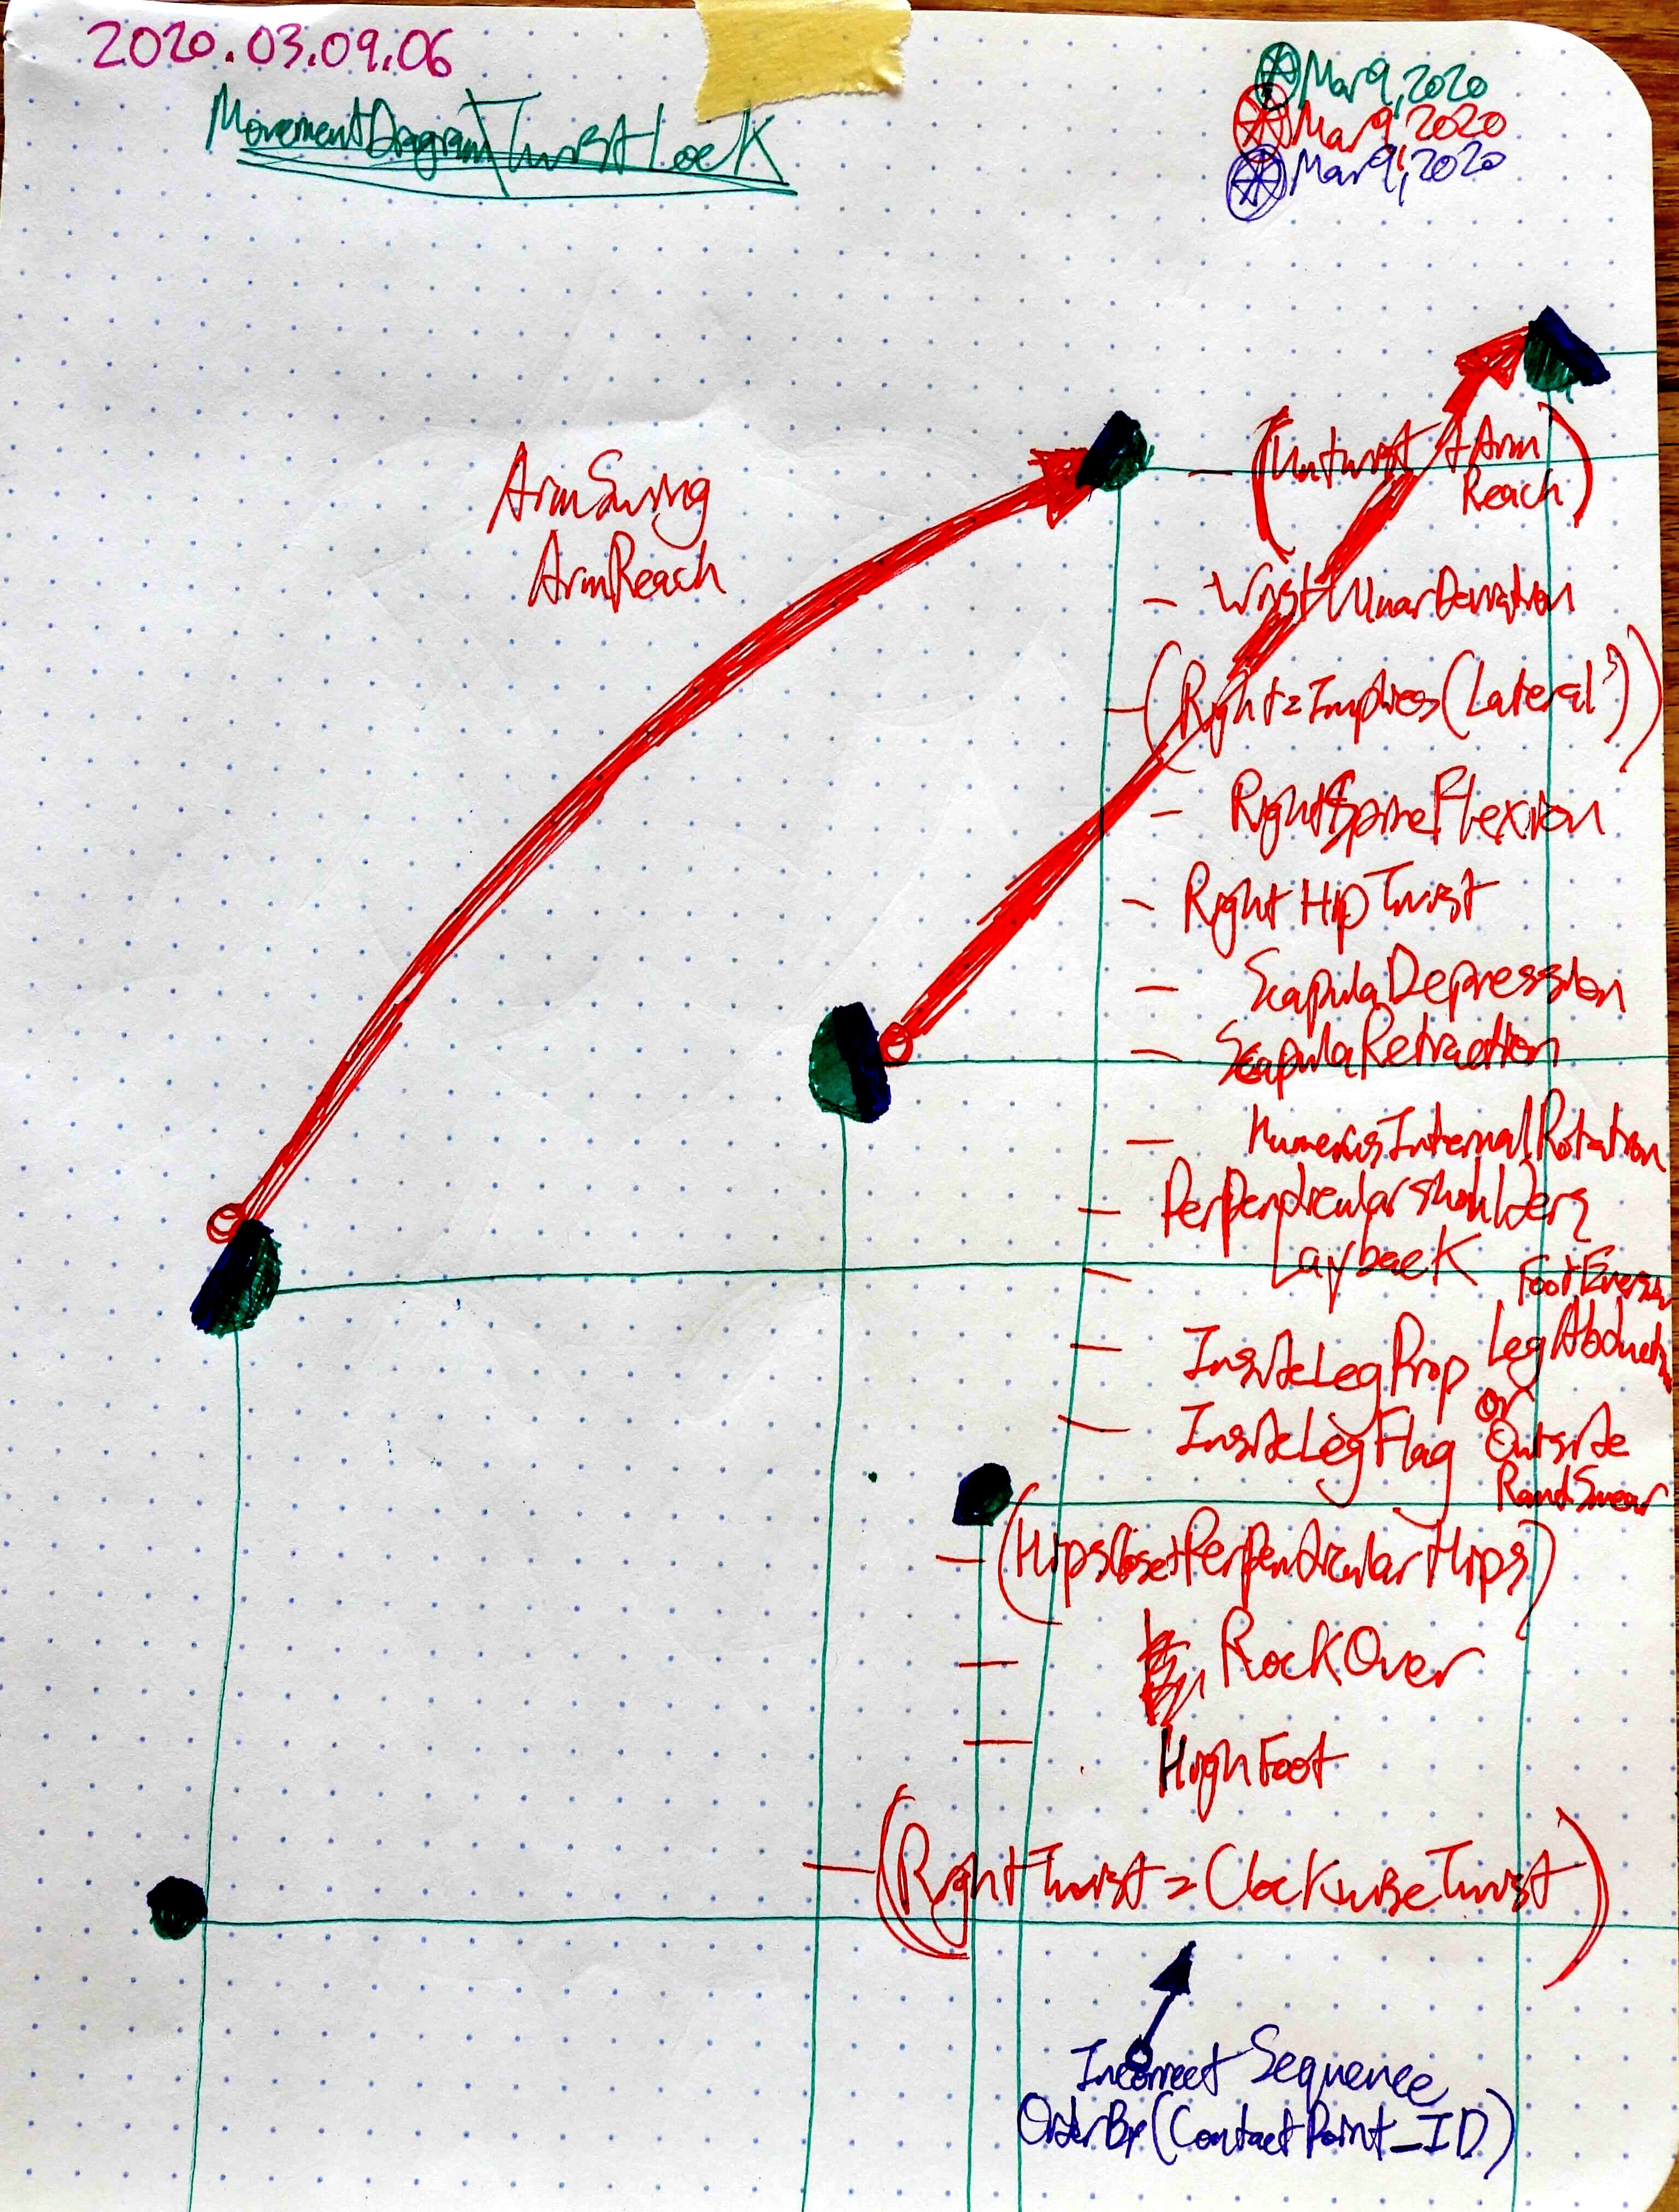 2020.03.09.06
MovementDiagramTwistLock
Mar 9, 2020
Mar 9, 2020
Mar 9, 2020
ArmSwing
ArmReach
- (Untwist + Arm
Reach)
- WristUlnarDeviation
- (Right = Implies (Lateral))
- RightSpineFlexion
- RightHipTwist
- ScapulaDepression
- ScapulaRetraction
- HumerusInternalRotation
- PerpendicularShoulders
- Layback
FootEversion
- InsideLegProp
LegAbduction
or
- InsideLegFlag
Outside
RandSmear
- (HipsClose + PerpendicularHips)
- RockOver
- HighFoot
- (RightTwist = ClockwiseTwist)
Incorrect Sequence
OrderBy(ContactPoint_ID)